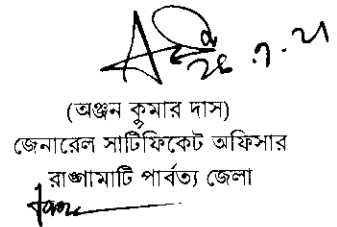 ২৬.৭.২১
(অঞ্জন কুমার দাস)
জেনারেল সার্টিফিকেট অফিসার
রাঙ্গামাটি পার্বত্য জেলা